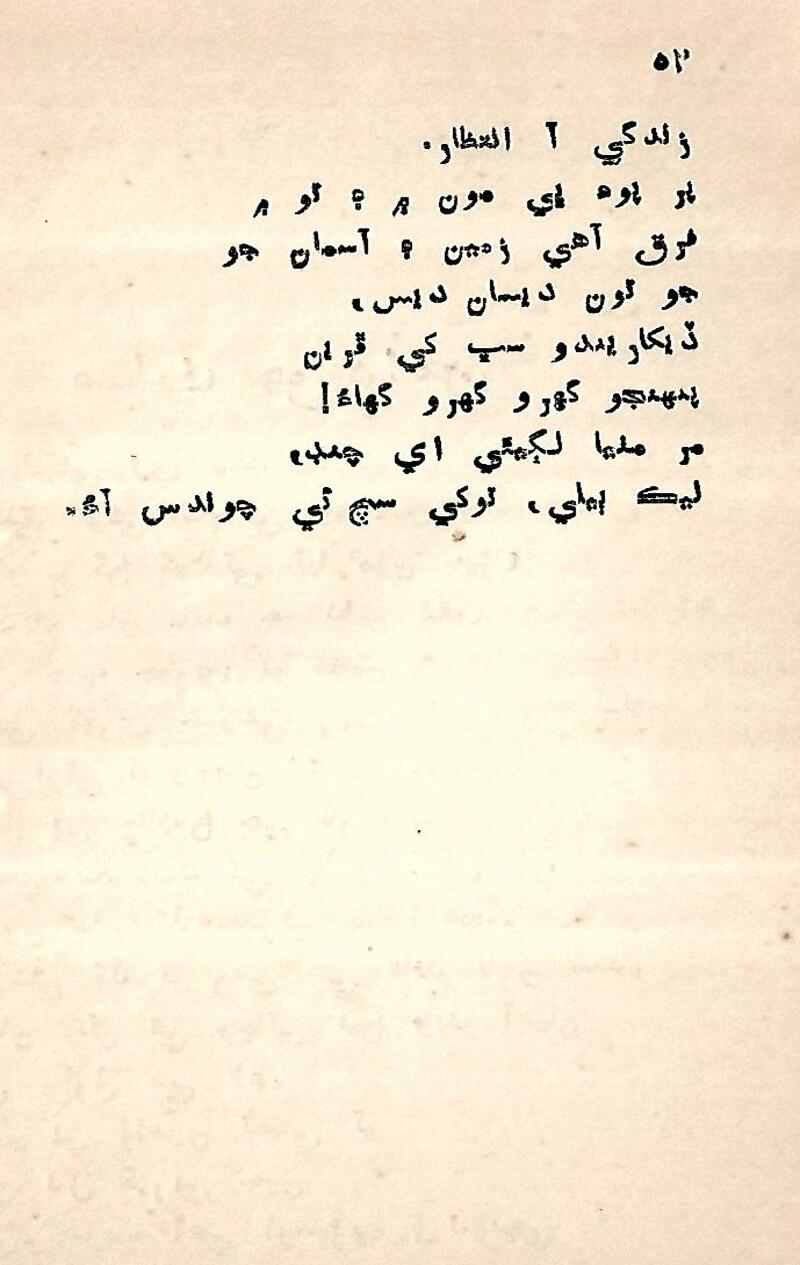 ٥٢
زندگي آ انتظار.
پر پوءِ ڀي مون ۾ ۽ تو ۾
فرق آهي زمين ۽ آسمان جو
جو تون ڏيهان ڏيهه،
ڏيکاريندو سڀ کي ڦرين
پنهنجو گهرو گهرو گهاءُ!
مر مڃيا لڳيئي اي چنڊ،
ليڪ ڀلي، توکي سچ ٿي چوندس آءٌ.